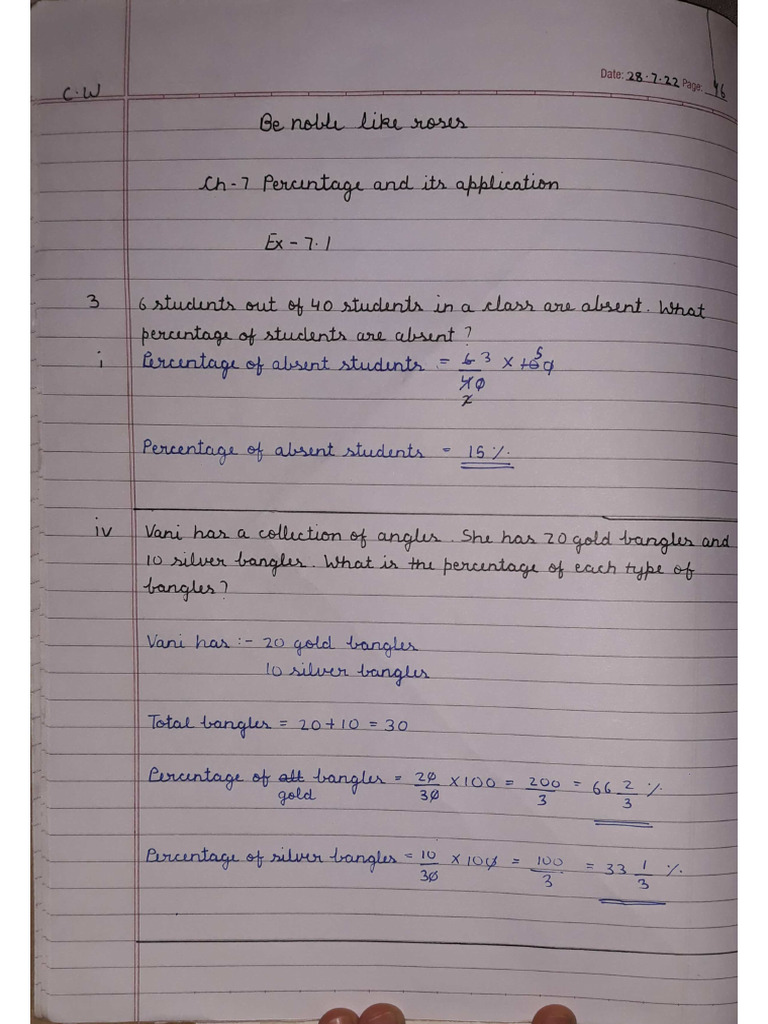 Date: 28-7-22 Page: 46
C.W
Be noble like roses
Ch-7 Percentage and its application
Ex-7.1
3 6 students out of 40 students in a class are absent. What
percentage of students are absent?
i Percentage of absent students = 6 3 × 100 5
40
2
Percentage of absent students = 15 %
iv Vani has a collection of angles. She has 20 gold bangles and
10 silver bangles. What is the percentage of each type of
bangles?
Vani has :- 20 gold bangles
10 silver bangles
Total bangles = 20+10 = 30
Percentage of all bangles = 20/30 ×100 = 200/3 = 66 2/3 %
gold
Percentage of silver bangles = 10/30 × 100 = 100/3 = 33 1/3 %